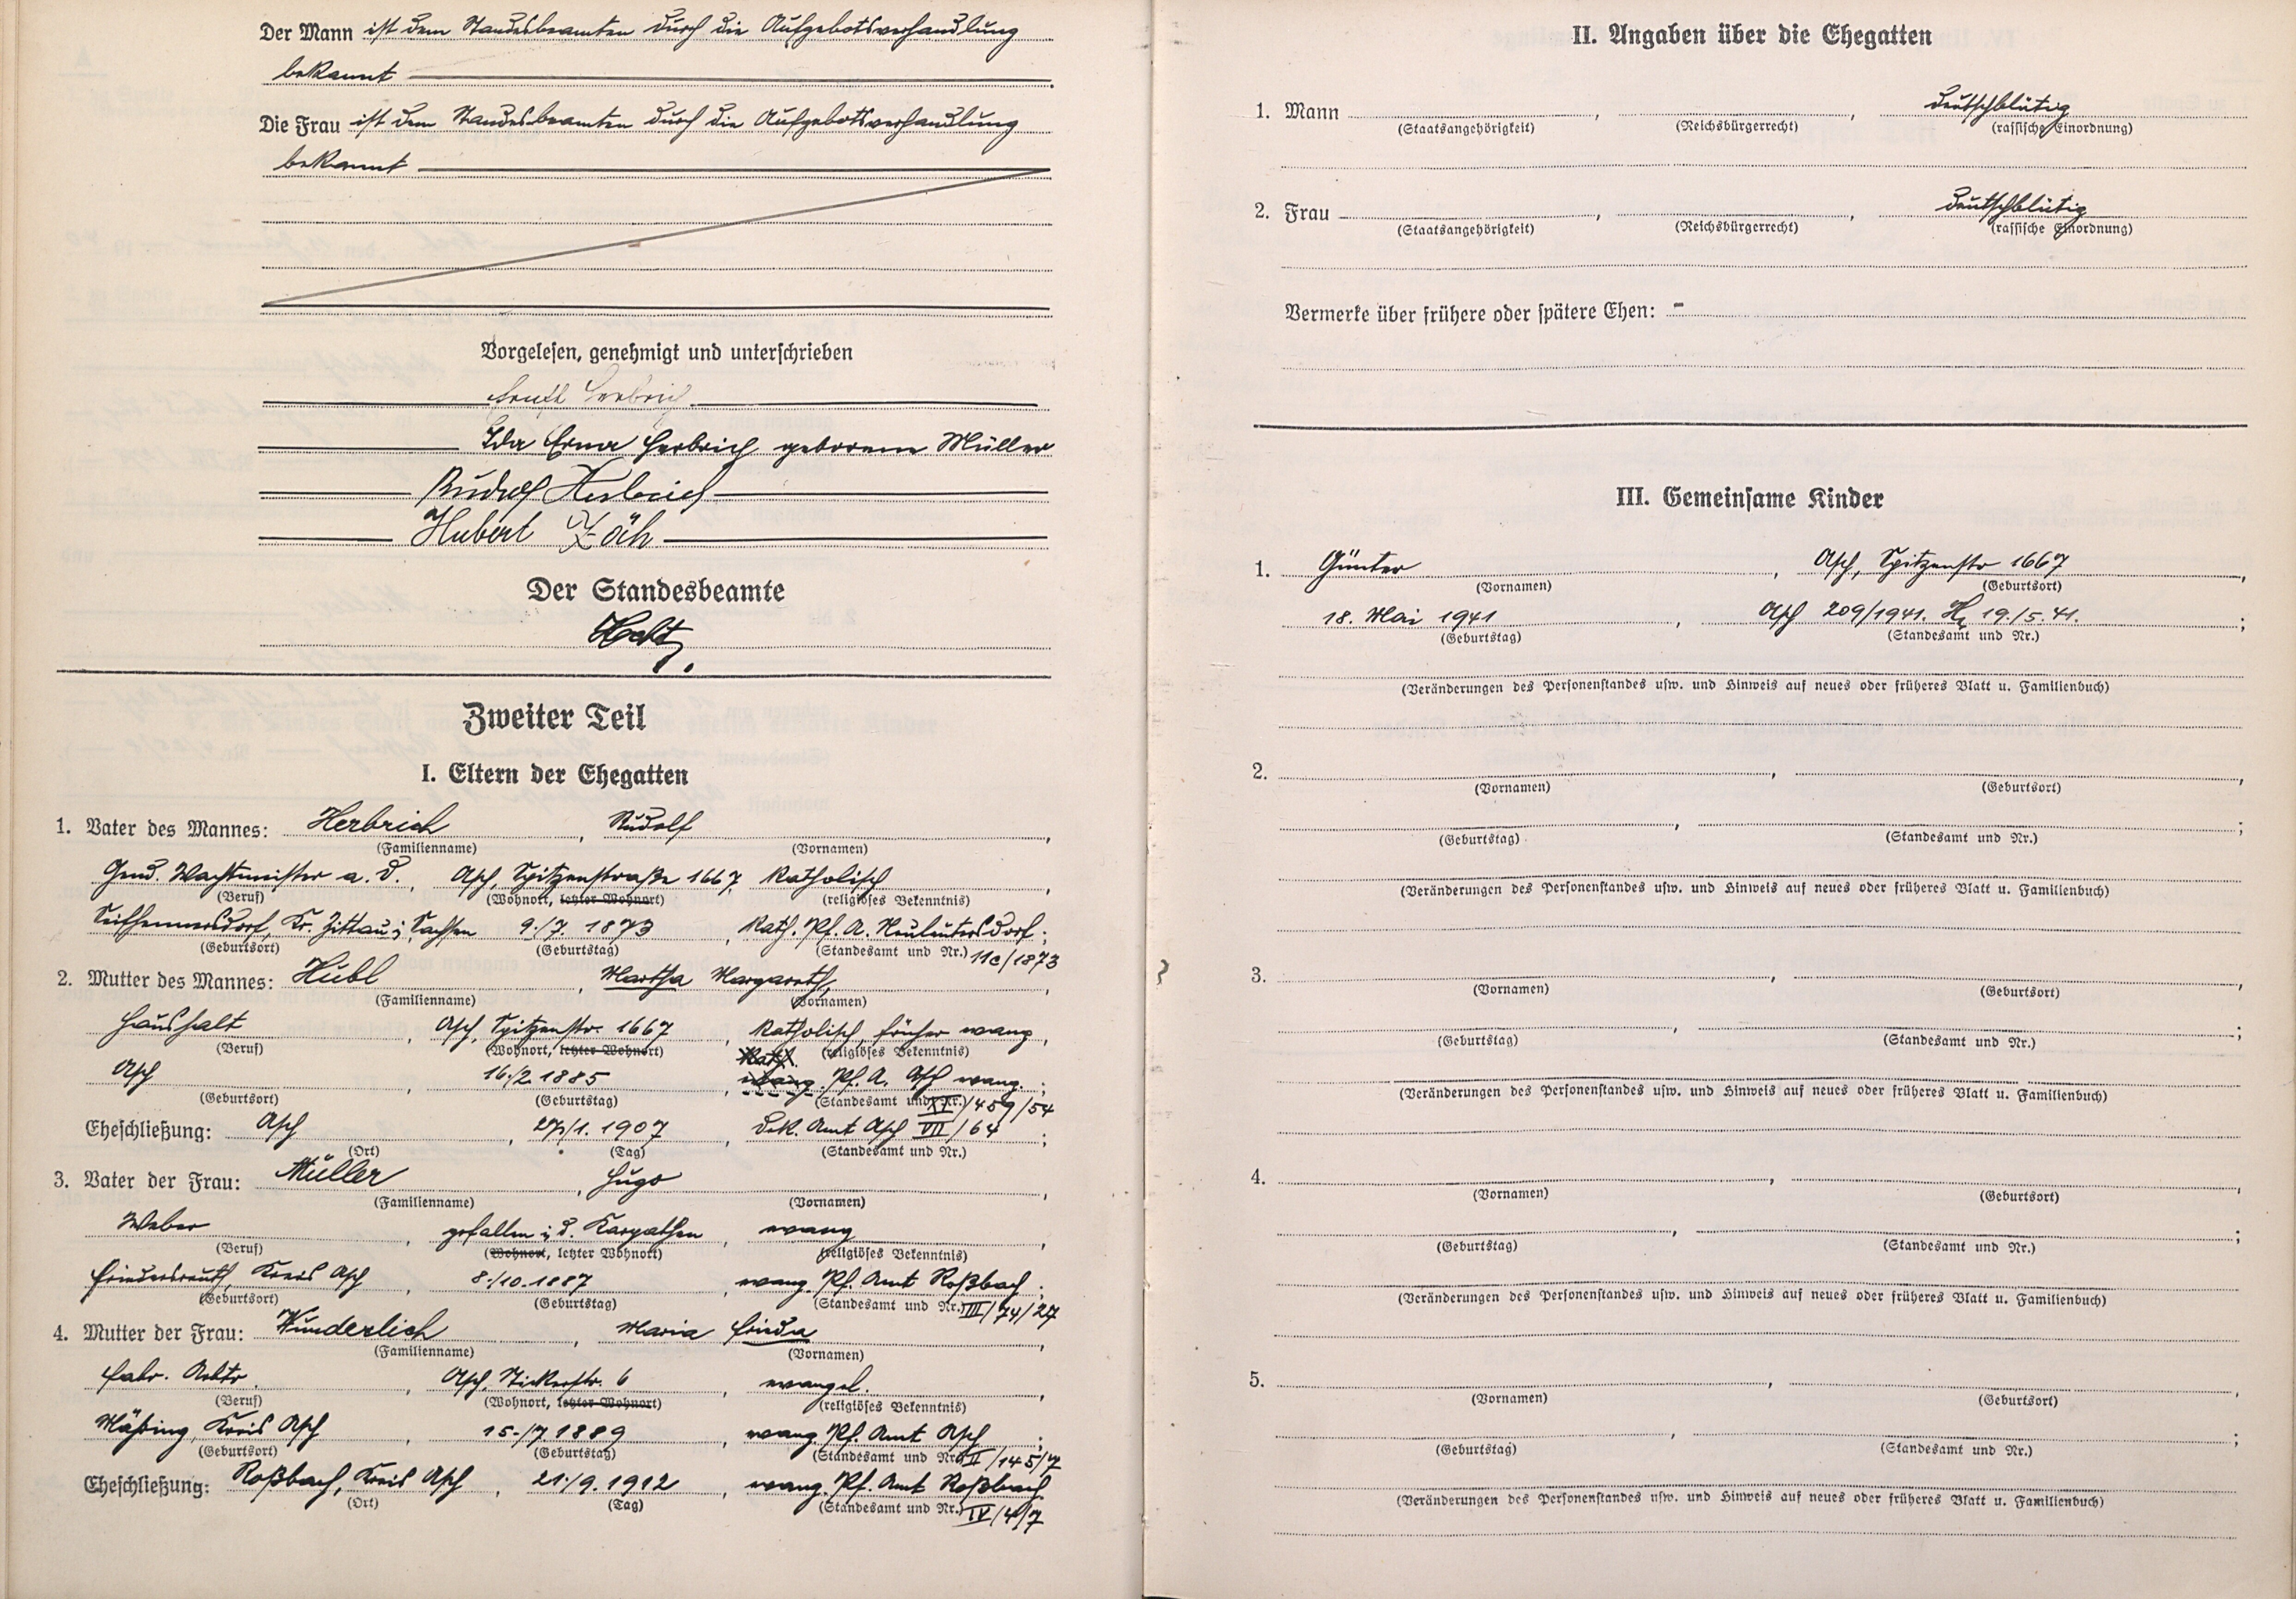 Der Mann ist dem Standesbeamten durch die Aufgebotsverhandlung
bekannt
Die Frau ist dem Standesbeamten durch die Aufgebotsverhandlung
bekannt
Vorgelesen, genehmigt und unterschrieben
Ernst Herbrich
Ida Erna Herbrich geborene Müller
Rudolf Herbrich
Hubert Zäh
Der Standesbeamte
Zweiter Teil
I. Eltern der Ehegatten
1. Vater des Mannes: Herbrich, Rudolf,
(Familienname) (Vornamen)
Gend. Wachtmeister a. D., Asch, Spitzenstraße 1667 katholisch,
(Beruf) (Wohnort, letzter Wohnort) (religiöses Bekenntnis)
Seifhennersdorf, Kr. Zittau i. Sachsen 9./7. 1873, Kath. Pf. A. Neuleutersdorf;
(Geburtsort) (Geburtstag) (Standesamt und Nr.) 11c/1873
2. Mutter des Mannes: Hübl, Martha Margareth,
(Familienname) (Vornamen)
Haushalt, Asch, Spitzenstr. 1667, katholisch, früher evang,
(Beruf) (Wohnort, letzter Wohnort) Kath. (religiöses Bekenntnis)
Asch, 16./2. 1885, evang. Pf. A. Asch evang.;
(Geburtsort) (Geburtstag) (Standesamt und Nr.) XI/459/54
Eheschließung: Asch, 27./1. 1907, Dek. Amt Asch VII/64;
(Ort) (Tag) (Standesamt und Nr.)
3. Vater der Frau: Müller, Hugo,
(Familienname) (Vornamen)
Weber, gefallen i. d. Karpathen, evang,
(Beruf) (Wohnort, letzter Wohnort) (religiöses Bekenntnis)
Friedersreuth, Kreis Asch, 8./10. 1887, evang. Pf. Amt Roßbach;
(Geburtsort) (Geburtstag) (Standesamt und Nr.) III/74/27
4. Mutter der Frau: Wunderlich, Maria Frieda,
(Familienname) (Vornamen)
Fabr. Arbtr., Asch, Stickerstr. 6, evangel.,
(Beruf) (Wohnort, letzter Wohnort) (religiöses Bekenntnis)
Mähring, Kreis Asch, 15./7. 1889, evang. Pf. Amt Asch;
(Geburtsort) (Geburtstag) (Standesamt und Nr.) XII/145/7
Eheschließung: Roßbach, Kreis Asch, 21./9. 1912, evang. Pf. Amt Roßbach
(Ort) (Tag) (Standesamt und Nr.) IV/4/7
II. Angaben über die Ehegatten
1. Mann , , deutschblütig
(Staatsangehörigkeit) (Reichsbürgerrecht) (rassische Einordnung)
2. Frau , , deutschblütig
(Staatsangehörigkeit) (Reichsbürgerrecht) (rassische Einordnung)
Vermerke über frühere oder spätere Ehen: -
III. Gemeinsame Kinder
1. Günter, Asch, Spitzenstr 1667,
(Vornamen) (Geburtsort)
18. Mai 1941, Asch 209/1941. 19./5. 41.;
(Geburtstag) (Standesamt und Nr.)
(Veränderungen des Personenstandes usw. und Hinweis auf neues oder früheres Blatt u. Familienbuch)
2. , ,
(Vornamen) (Geburtsort)
, ;
(Geburtstag) (Standesamt und Nr.)
(Veränderungen des Personenstandes usw. und Hinweis auf neues oder früheres Blatt u. Familienbuch)
3. , ,
(Vornamen) (Geburtsort)
, ;
(Geburtstag) (Standesamt und Nr.)
(Veränderungen des Personenstandes usw. und Hinweis auf neues oder früheres Blatt u. Familienbuch)
4. , ,
(Vornamen) (Geburtsort)
, ;
(Geburtstag) (Standesamt und Nr.)
(Veränderungen des Personenstandes usw. und Hinweis auf neues oder früheres Blatt u. Familienbuch)
5. , ,
(Vornamen) (Geburtsort)
, ;
(Geburtstag) (Standesamt und Nr.)
(Veränderungen des Personenstandes usw. und Hinweis auf neues oder früheres Blatt u. Familienbuch)